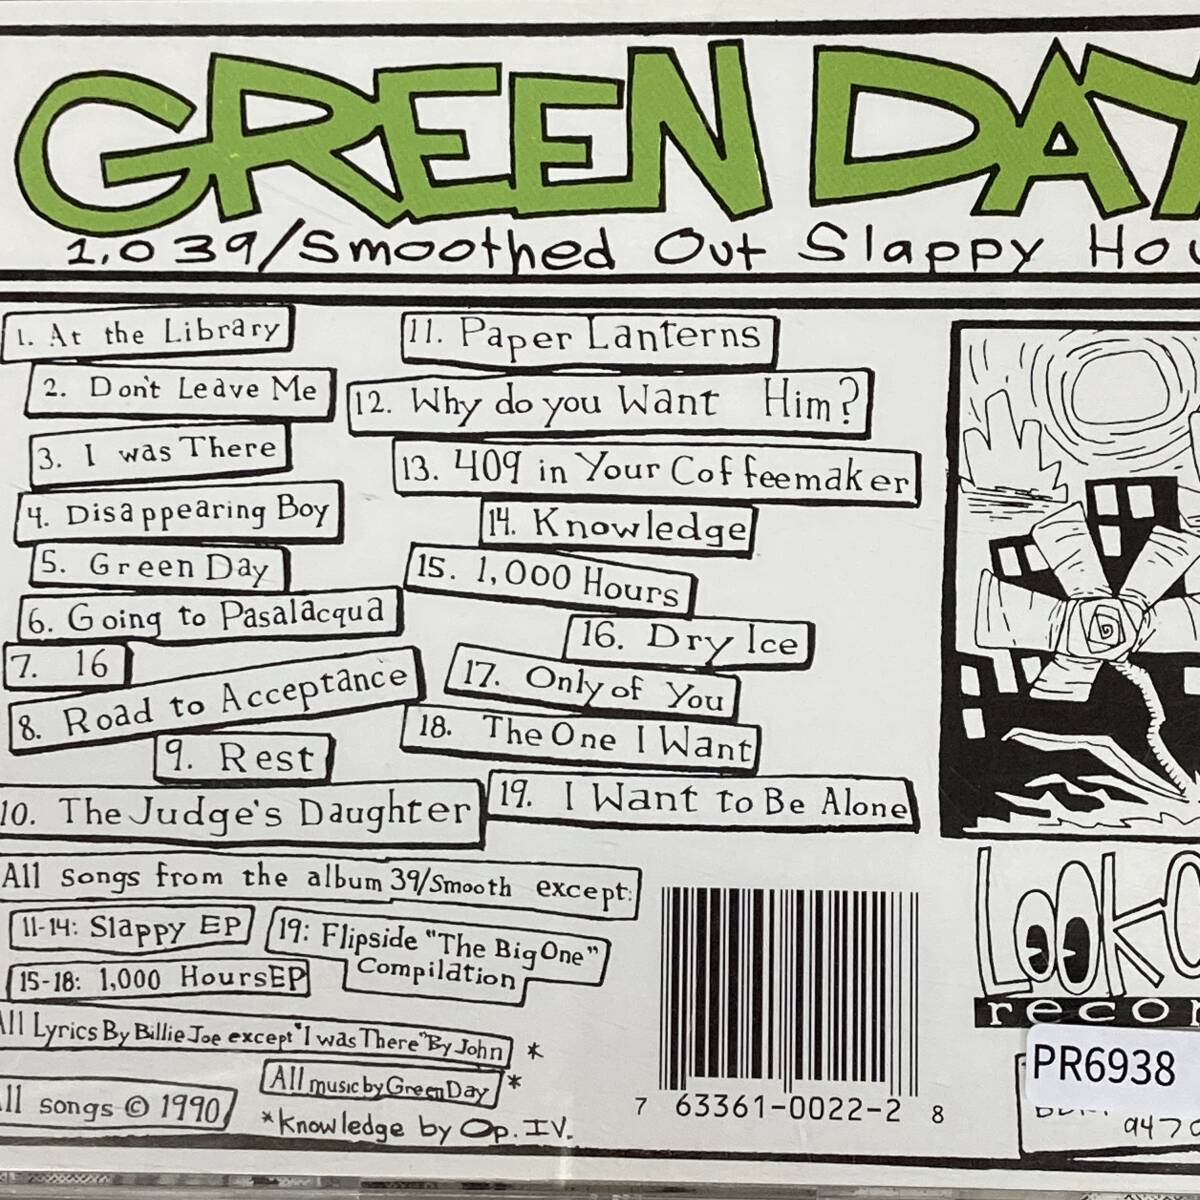 GREEN DAY
1,039/Smoothed Out Slappy Hou
1. At the Library
2. Don't Leave Me
3. I was There
4. Disappearing Boy
5. Green Day
6. Going to Pasalacqua
7. 16
8. Road to Acceptance
9. Rest
10. The Judge's Daughter
11. Paper Lanterns
12. Why do you Want Him?
13. 409 in Your Coffeemaker
14. Knowledge
15. 1,000 Hours
16. Dry Ice
17. Only of You
18. The One I Want
19. I Want to Be Alone
All songs from the album 39/Smooth except:
11-14: Slappy EP
19: Flipside "The Big One"
Compilation
15-18: 1,000 Hours EP
All Lyrics By Billie Joe except "I was There" By John *
All music by Green Day *
All songs © 1990
*Knowledge by Op. IV.
7 63361-0022-2 8
LOOKO
recor
PR6938
9470